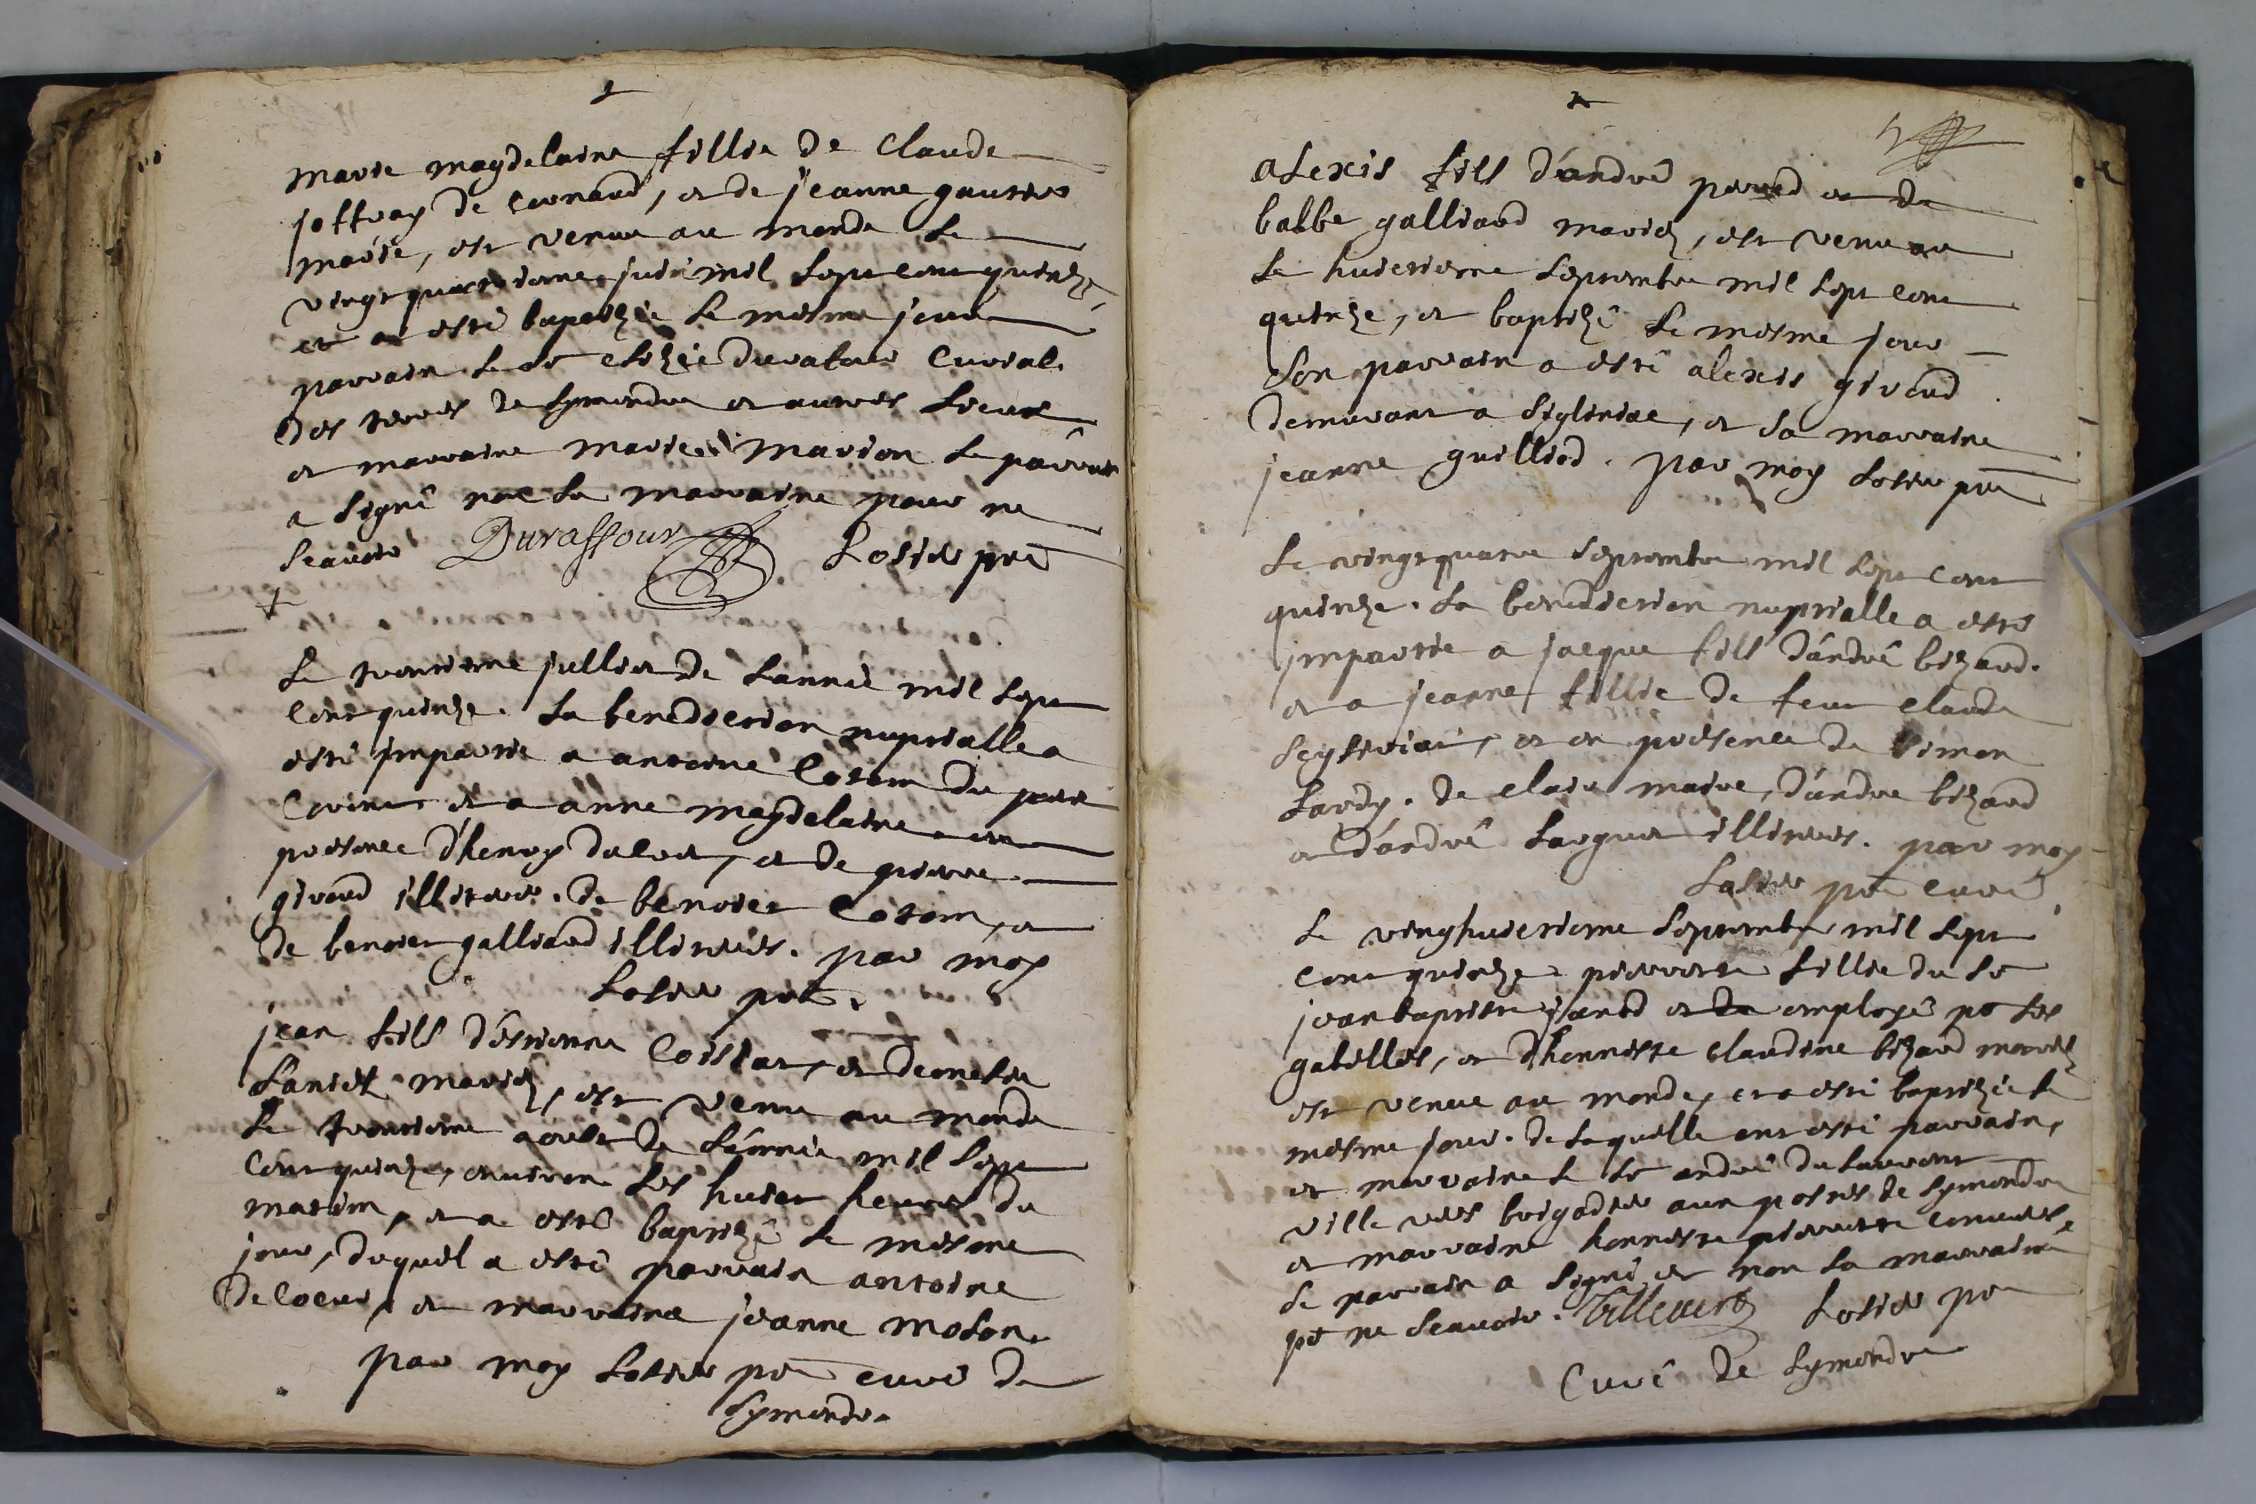 marie magdelaine fillie de Claude
joffray de Cornaud, et de jeanne gautier
mariée, est venue au monde le
vingt quatrieme juin mil sept cent quinze,
et a esté baptizée le mesme jour
parrain le sr Curial
des terres de Symandre et autres lieux
et marraine marie marion le parrain
a signé non la marraine pour ne
scavoir Durassour Losier pre
Le troisieme jullier de l'année mil sept
cent quinze. La benediction nuptialle a
esté impartie a antoine Cotom du
et a anne magdelaine en
presence d'henry, et de pierre
girard illiteré. de benoict Cotom, et
de benoict galliard illiterés. par moy
Losier pre.
jean fils d'éstienne Coillar, et
mariez, est venu au monde
le troisieme aoust de l'année mil sept
cent quinze, environ les huict heures du
matin, et a esté baptizé le mesme
jour, duquel a esté parrain antoine
De Coeur, et marraine jeanne molon.
par moy Losier pre curé de
Symandre.
alexis fils d'andré perrod et de
balbe galliard mariez, est venu au
le huictieme septembre mil sept cent
quinze, et baptizé le mesme jour
Son parrain a esté alexis girard
demurant a, et sa marraine
jeanne guilliod. par moy Losier pre
Le vingt quatre septembre mil sept cent
quinze. La benediction nuptialle a esté
impartie a jacque fils d'andré bizard.
et a jeanne fillie de feu claude
, et en presence de Simon
Lardy. de claire maire, d'andre bizard
et d'andré illiterés. par moy
Losier pre curé
Le vinghuictieme septembre mil sept
cent quinze pierrette fillie du sr
jean baptiste janod et employé pr les
gabelles, et d'honneste claudine bizard mariez
est venue au monde, et a esté baptizée le
mesme jour. de laquelle ont esté parrain,
et marraine le sr andré du laurent
ville vert brigadier aux postes de Symandre
et marraine honneste pierrette
le parrain a signé et non la marraine
pr ne scavoir. Villevert Losier pre
Curé de Symandre